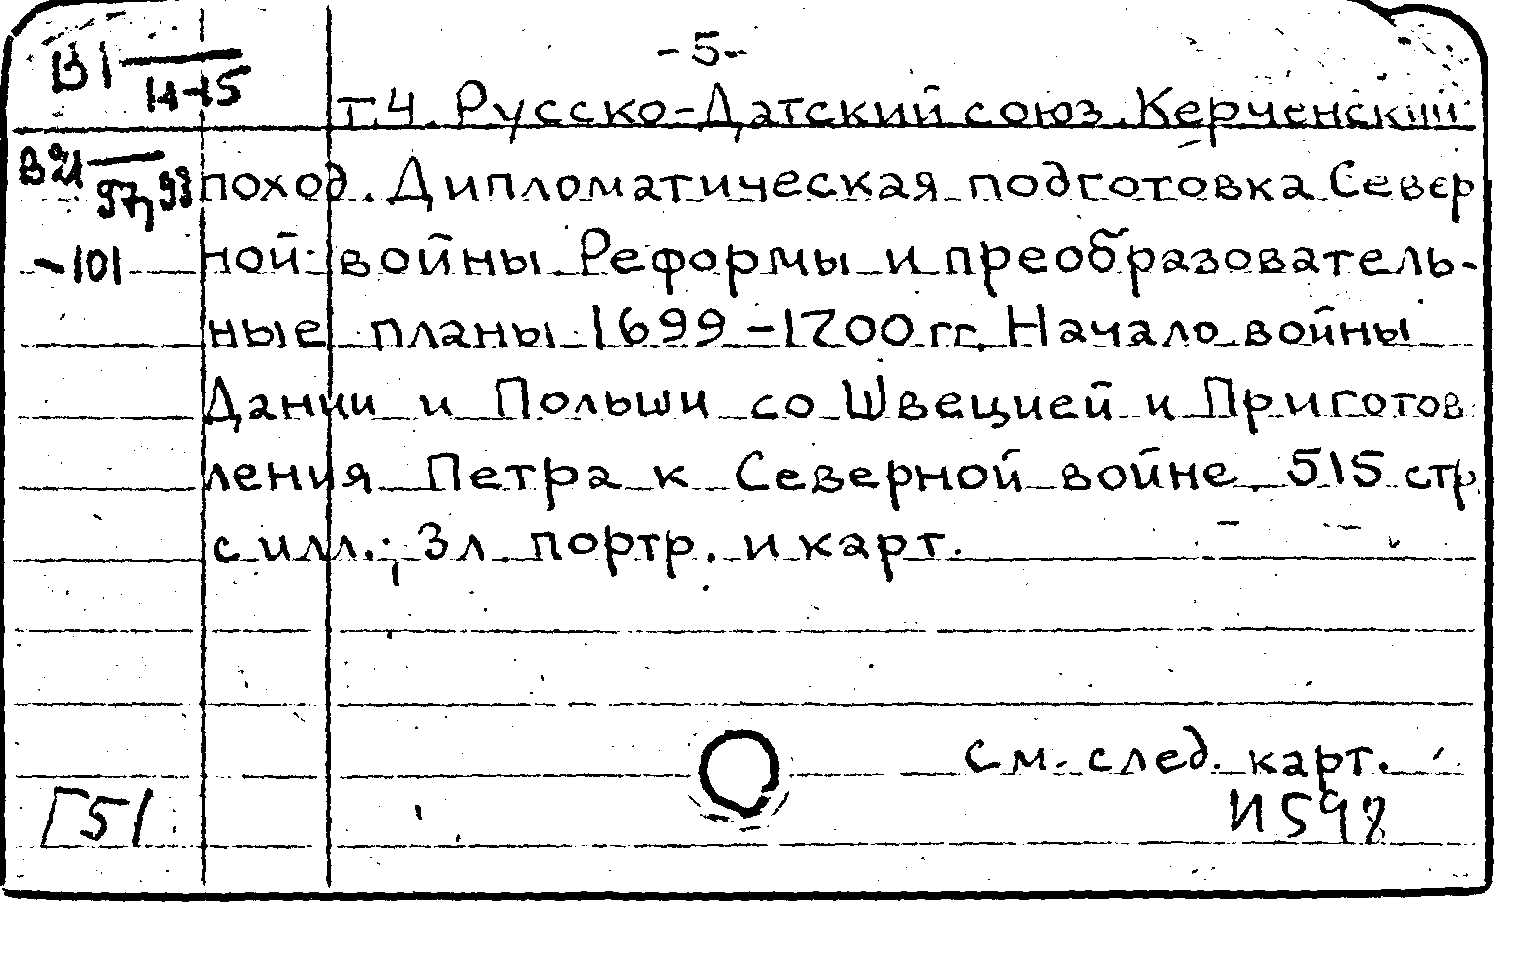 -5-
В1 14-15
т.4. Русско-Датский союз. Керченский
В21 97, 93 поход. Дипломатическая подготовка Север
-101 ной войны Реформы и преобразователь-
ные планы 1699-1700 гг. Начало войны
Дании и Польши со Швецией и Приготов
ления Петра к Северной войне. 515 стр
с илл.; 3 л. портр. и карт.
См. след. карт.
Г51 И598